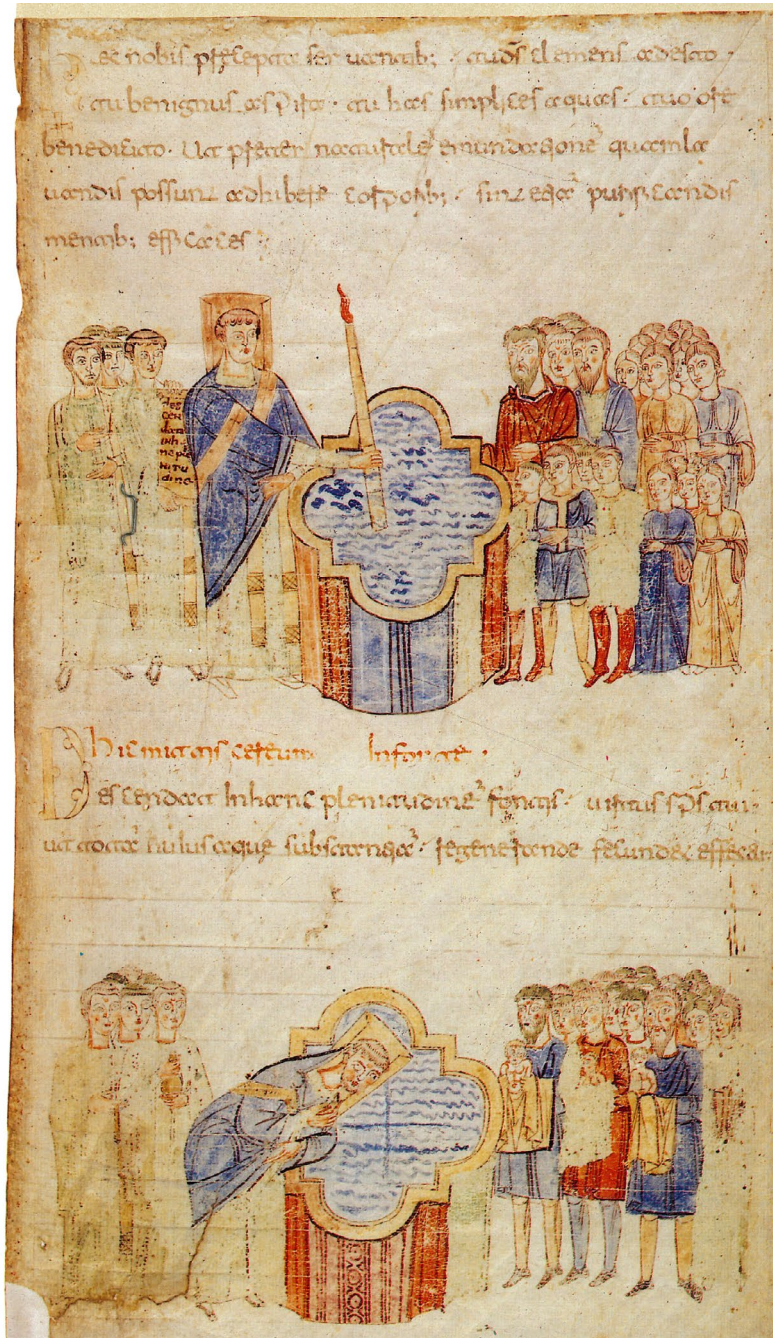 ec nobis precepta seruantib; · tu ds clemens adesto ·
tu benignus aspira · tu has simplices aquas · tuo ore
benedicito · Ut preter naturale emundatione quam la
uandis possunt adhibere corporib; · sint etia purificandis
mentib; efficaces ·
hic mittatis cereum In fonte ·
Descendat In hanc plenitudine fontis · uirtus sps tui ·
huius aque substantia · regenerande fecundet effect